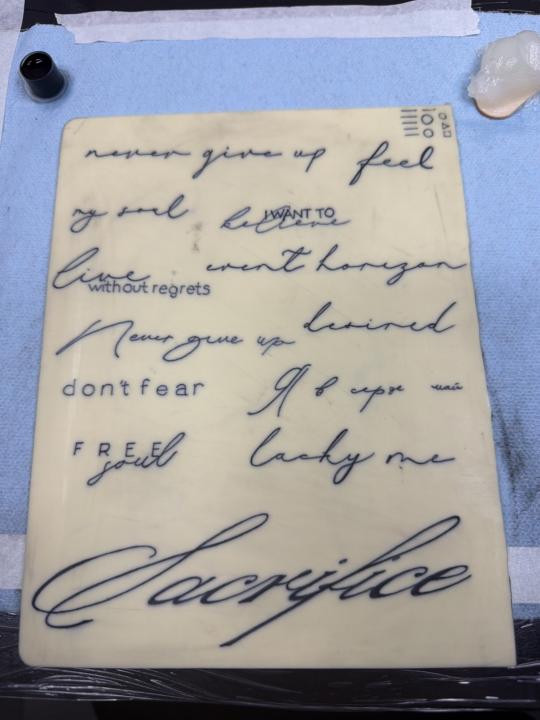 never give up feel
my soul I WANT TO believe
live without regrets event horizon
Never give up desired
don't fear Я в
FREE soul lacky me
Sacrifice